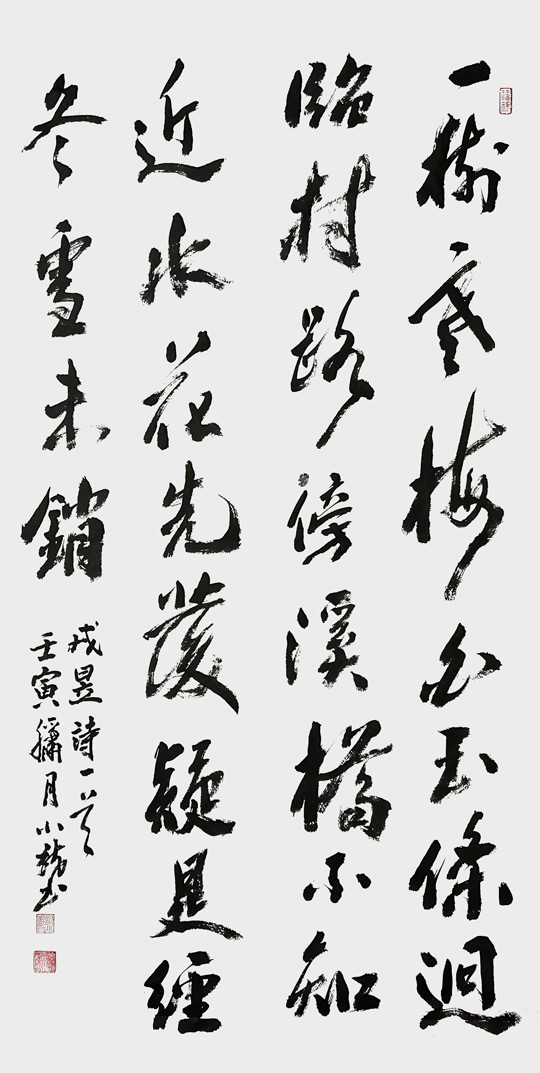 一樹寒梅白玉條迥
臨村路傍溪橋不知
近水花先發疑是經
冬雪未銷
戎昱詩一首
壬寅臘月小